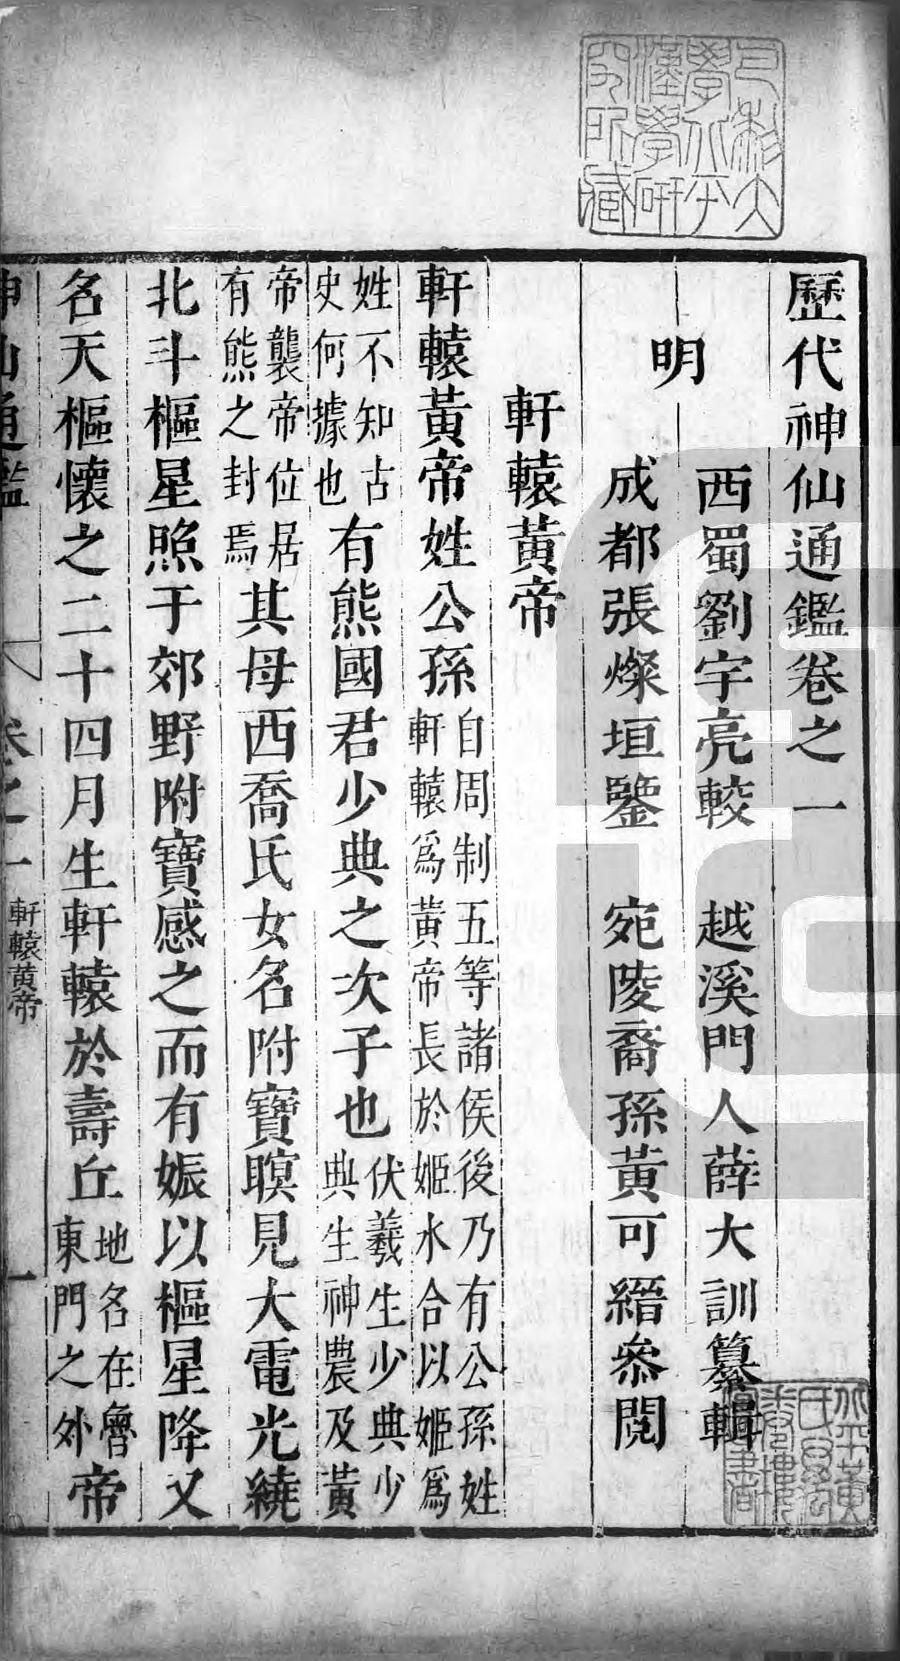 歷代神仙通鑑卷之一
明
西蜀劉宇亮較　越溪門人薛大訓纂輯
成都張燦垣鑒　宛陵裔孫黃可縉叅閱
軒轅黃帝
軒轅黃帝姓公孫自周制五等諸侯後乃有公孫姓軒轅爲黃帝長於姬水合以姬爲
姓不知古史何據也有熊國君少典之次子也伏羲生少典少典生神農及黃
帝襲帝位居有熊之封焉其母西喬氏女名附寶暝見大電光繞
北斗樞星照于郊野附寶感之而有娠以樞星降又
名天樞懷之二十四月生軒轅於壽丘地名在魯東門之外帝
神仙通鑑　卷之一　軒轅黃帝　一